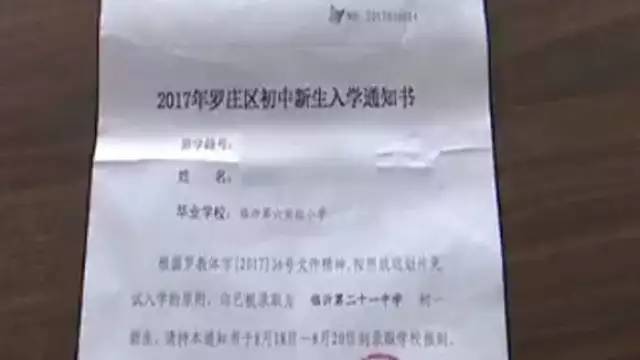 2017年罗庄区初中新生入学通知书
姓 名:
毕业学校: 临沂第六实验小学
根据罗教体字[2017]36号文件精神,按照就近划片免
试入学的原则,你已被录取为 临沂第二十一中学 初一
新生。请持本通知书于8月18日—8月20日到录取学校报到。